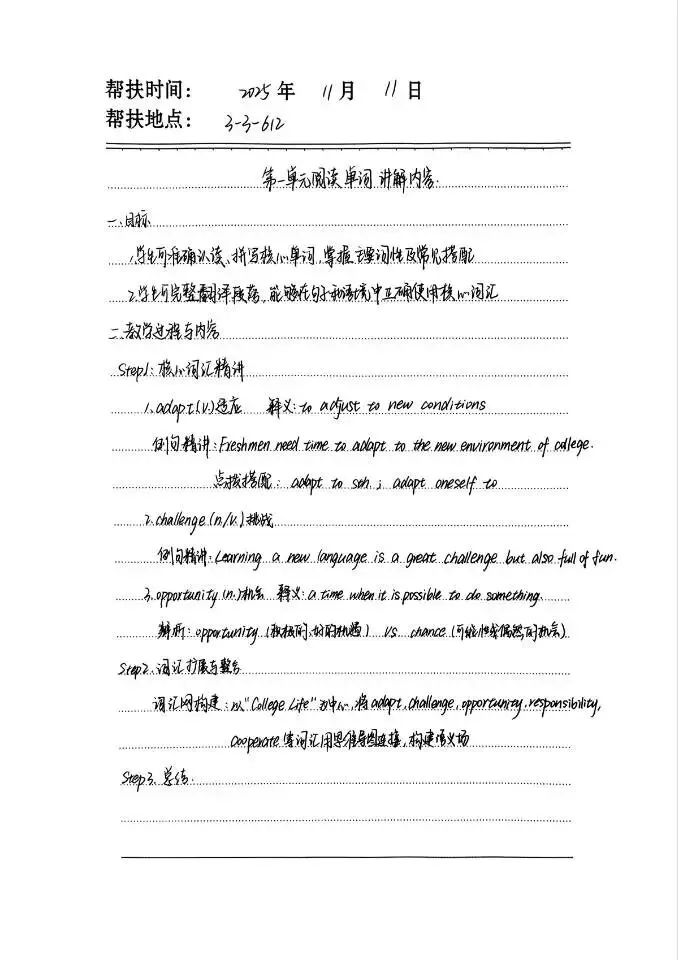 帮扶时间： 2025 年 11 月 11 日
帮扶地点： 3-3-612
第一单元阅读单词讲解内容.
一、目标
1.学生可准确认读、拼写核心单词，掌握主要词性及常见搭配
2.学生可完整翻译段落，能够在句子和语境中正确使用核心词汇
二、教学过程与内容
Step1：核心词汇精讲
1. adapt (v.) 适应 释义：to adjust to new conditions
例句精讲：Freshmen need time to adapt to the new environment of college.
点拨搭配：adapt to sth ; adapt oneself to
2. challenge (n./v.) 挑战
例句精讲：Learning a new language is a great challenge but also full of fun.
3. opportunity (n.) 机会 释义：a time when it is possible to do something.
辨析：opportunity (积极的、好的机遇) vs chance (可能性或偶然的机会)
Step2. 词汇扩展与整合
词汇网构建：以"College Life"为中心，将adapt, challenge, opportunity, responsibility,
cooperate 等词汇用思维导图连接，构建语义场
Step3. 总结.